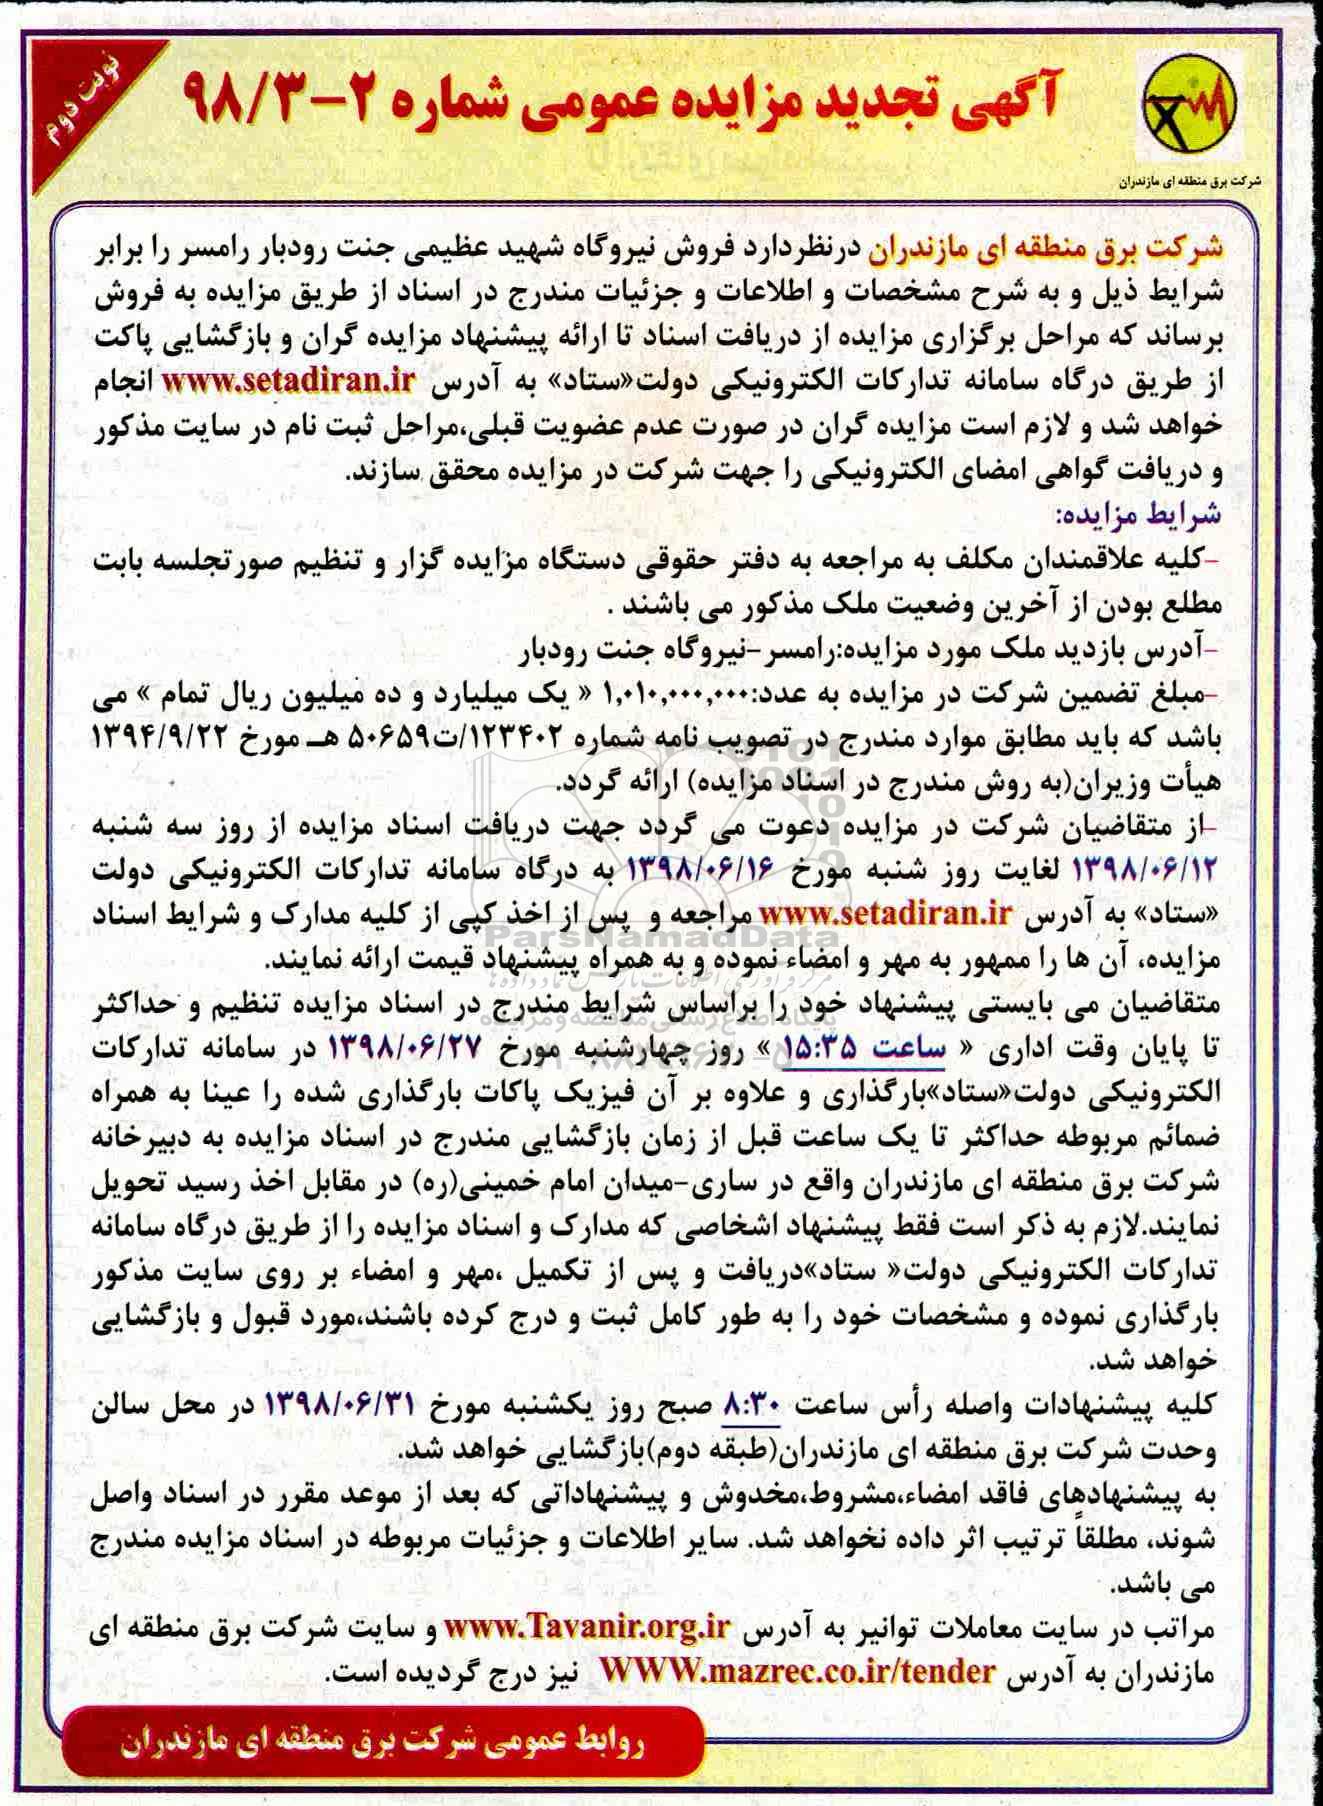 نوبت دوم
آگهی تجدید مزایده عمومی شماره ۲-۹۸/۳
شرکت برق منطقه ای مازندران
شرکت برق منطقه ای مازندران درنظردارد فروش نیروگاه شهید عظیمی جنت رودبار رامسر را برابر
شرایط ذیل و به شرح مشخصات و اطلاعات و جزئیات مندرج در اسناد از طریق مزایده به فروش
برساند که مراحل برگزاری مزایده از دریافت اسناد تا ارائه پیشنهاد مزایده گران و بازگشایی پاکت
از طریق درگاه سامانه تدارکات الکترونیکی دولت«ستاد» به آدرس www.setadiran.ir انجام
خواهد شد و لازم است مزایده گران در صورت عدم عضویت قبلی،مراحل ثبت نام در سایت مذکور
و دریافت گواهی امضای الکترونیکی را جهت شرکت در مزایده محقق سازند.
شرایط مزایده:
-کلیه علاقمندان مکلف به مراجعه به دفتر حقوقی دستگاه مزایده گزار و تنظیم صورتجلسه بابت
مطلع بودن از آخرین وضعیت ملک مذکور می باشند .
-آدرس بازدید ملک مورد مزایده:رامسر-نیروگاه جنت رودبار
-مبلغ تضمین شرکت در مزایده به عدد:۱,۰۱۰,۰۰۰,۰۰۰ « یک میلیارد و ده میلیون ریال تمام » می
باشد که باید مطابق موارد مندرج در تصویب نامه شماره ۱۲۳۴۰۲/ت۵۰۶۵۹ هـ مورخ ۱۳۹۴/۹/۲۲
هیأت وزیران(به روش مندرج در اسناد مزایده) ارائه گردد.
-از متقاضیان شرکت در مزایده دعوت می گردد جهت دریافت اسناد مزایده از روز سه شنبه
۱۳۹۸/۰۶/۱۲ لغایت روز شنبه مورخ ۱۳۹۸/۰۶/۱۶ به درگاه سامانه تدارکات الکترونیکی دولت
«ستاد» به آدرس www.setadiran.ir مراجعه و پس از اخذ کپی از کلیه مدارک و شرایط اسناد
ParsNamadData
مزایده، آن ها را ممهور به مهر و امضاء نموده و به همراه پیشنهاد قیمت ارائه نمایند.
متقاضیان می بایستی پیشنهاد خود را براساس شرایط مندرج در اسناد مزایده تنظیم و حداکثر
تا پایان وقت اداری « ساعت ۱۵:۳۵ » روز چهارشنبه مورخ ۱۳۹۸/۰۶/۲۷ در سامانه تدارکات
الکترونیکی دولت«ستاد»بارگذاری و علاوه بر آن فیزیک پاکات بارگذاری شده را عینا به همراه
ضمائم مربوطه حداکثر تا یک ساعت قبل از زمان بازگشایی مندرج در اسناد مزایده به دبیرخانه
شرکت برق منطقه ای مازندران واقع در ساری-میدان امام خمینی(ره) در مقابل اخذ رسید تحویل
نمایند.لازم به ذکر است فقط پیشنهاد اشخاصی که مدارک و اسناد مزایده را از طریق درگاه سامانه
تدارکات الکترونیکی دولت« ستاد»دریافت و پس از تکمیل ،مهر و امضاء بر روی سایت مذکور
بارگذاری نموده و مشخصات خود را به طور کامل ثبت و درج کرده باشند،مورد قبول و بازگشایی
خواهد شد.
کلیه پیشنهادات واصله رأس ساعت ۸:۳۰ صبح روز یکشنبه مورخ ۱۳۹۸/۰۶/۳۱ در محل سالن
وحدت شرکت برق منطقه ای مازندران(طبقه دوم)بازگشایی خواهد شد.
به پیشنهادهای فاقد امضاء،مشروط،مخدوش و پیشنهاداتی که بعد از موعد مقرر در اسناد واصل
شوند، مطلقاً ترتیب اثر داده نخواهد شد. سایر اطلاعات و جزئیات مربوطه در اسناد مزایده مندرج
می باشد.
مراتب در سایت معاملات توانیر به آدرس www.Tavanir.org.ir و سایت شرکت برق منطقه ای
مازندران به آدرس WWW.mazrec.co.ir/tender نیز درج گردیده است.
روابط عمومی شرکت برق منطقه ای مازندران